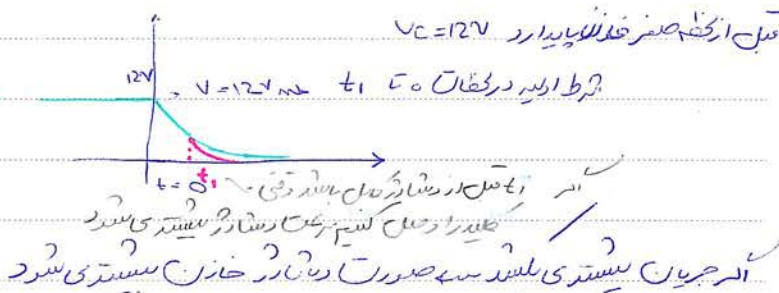 قبل از لحظه صفر فاز پایدار دارد VC = 12V
شرط اولیه در لحظات 0 تا t1
12V
V = 12V
t = 0 t1
اگر t1 قبل از دشارژ کامل باشد وقتی
کلید را وصل کنیم سرعت دشارژ بیشتر می‌شود
اگر جریان بیشتری بکشد صورت دشارژ خازن بیشتر می‌شود